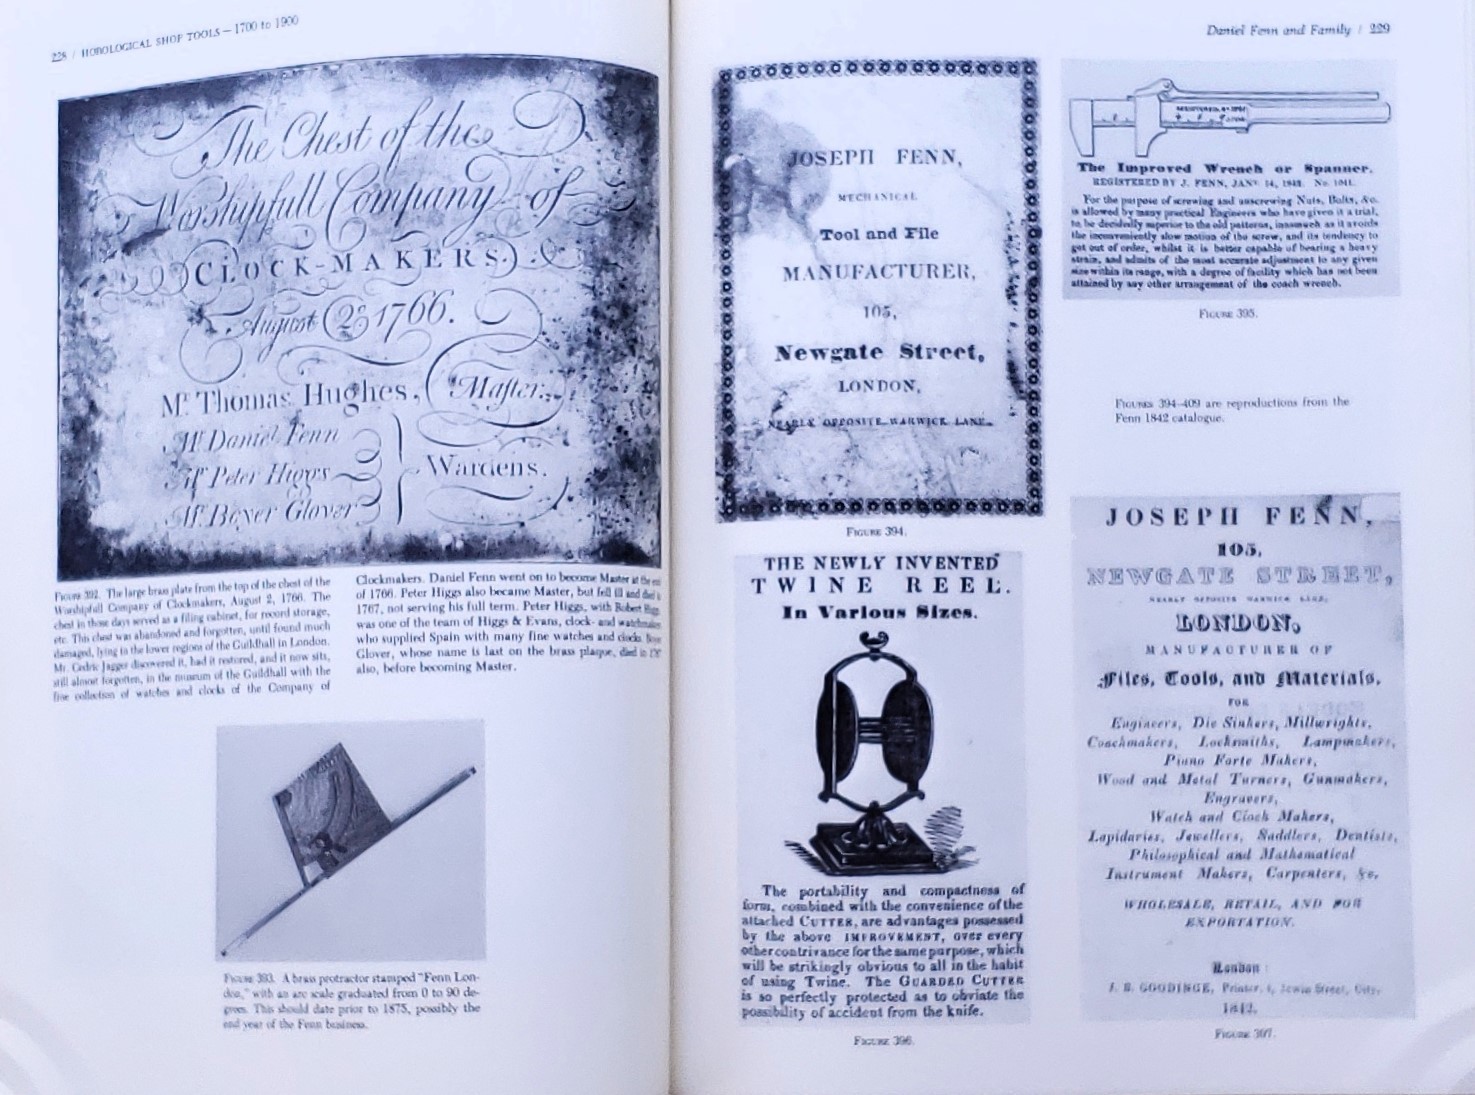 228 / HOROLOGICAL SHOP TOOLS — 1700 to 1900
The Chest of the
Worshipfull Company of
CLOCK-MAKERS.
August 2d 1766.
Mr Thomas Hughes, Master.
Mr Daniel Fenn
Mr Peter Higgs
Wardens.
Mr Bexer Glover
FIGURE 392. The large brass plate from the top of the chest of the
Worshipfull Company of Clockmakers, August 2, 1766. The
chest in those days served as a filing cabinet, for record storage,
etc. This chest was abandoned and forgotten, until found much
damaged, lying in the lower regions of the Guildhall in London.
Mr. Cedric Jagger discovered it, had it restored, and it now sits,
still almost forgotten, in the museum of the Guildhall with the
fine collection of watches and clocks of the Company of
Clockmakers. Daniel Fenn went on to become Master at the end
of 1766. Peter Higgs also became Master, but fell ill and died in
1767, not serving his full term. Peter Higgs, with Robert Higgs
was one of the team of Higgs & Evans, clock- and watchmakers
who supplied Spain with many fine watches and clocks.
Glover, whose name is last on the brass plaque, died in
also, before becoming Master.
FIGURE 393. A brass protractor stamped "Fenn Lon-
don," with an arc scale graduated from 0 to 90 de-
grees. This should date prior to 1875, possibly the
end year of the Fenn business.
Daniel Fenn and Family / 229
JOSEPH FENN,
MECHANICAL
Tool and File
MANUFACTURER,
105,
Newgate Street,
LONDON,
NEARLY OPPOSITE WARWICK LANE.
FIGURE 394.
THE NEWLY INVENTED
TWINE REEL.
In Various Sizes.
The portability and compactness of
form, combined with the convenience of the
attached CUTTER, are advantages possessed
by the above IMPROVEMENT, over every
other contrivance for the same purpose, which
will be strikingly obvious to all in the habit
of using Twine. The GUARDED CUTTER
is so perfectly protected as to obviate the
possibility of accident from the knife.
FIGURE 396.
The Improved Wrench or Spanner.
REGISTERED BY J. FENN, JANY. 14, 1842. No. 1041.
For the purpose of screwing and unscrewing Nuts, Bolts, &c.
is allowed by many practical Engineers who have given it a trial,
to be decidedly superior to the old patterns, inasmuch as it avoids
the inconveniently slow motion of the screw, and its tendency to
get out of order, whilst it is better capable of bearing a heavy
strain, and admits of the most accurate adjustment to any given
size within its range, with a degree of facility which has not been
attained by any other arrangement of the coach wrench.
FIGURE 395.
FIGURES 394–409 are reproductions from the
Fenn 1842 catalogue.
JOSEPH FENN,
105,
NEWGATE STREET,
NEARLY OPPOSITE WARWICK LANE,
LONDON,
MANUFACTURER OF
Files, Tools, and Materials,
FOR
Engineers, Die Sinkers, Millwrights,
Coachmakers, Locksmiths, Lampmakers,
Piano Forte Makers,
Wood and Metal Turners, Gunmakers,
Engravers,
Watch and Clock Makers,
Lapidaries, Jewellers, Saddlers, Dentists,
Philosophical and Mathematical
Instrument Makers, Carpenters, &c.
WHOLESALE, RETAIL, AND FOR
EXPORTATION.
London:
GOODINGE, Printer, Jewin Street, City.
1842.
FIGURE 397.